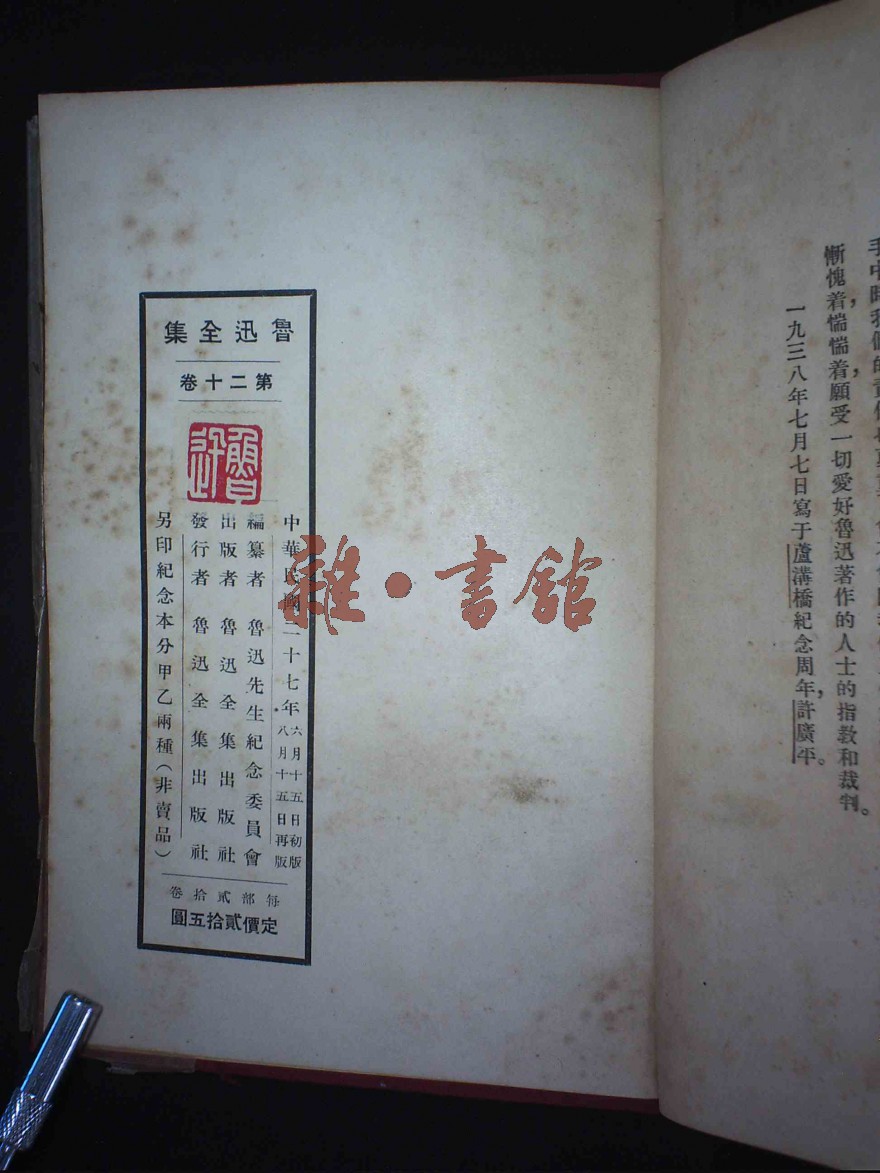 慚愧着，惴惴着，願受一切愛好魯迅著作的人士的指教和裁判。
一九三八年七月七日寫于蘆溝橋紀念周年，許廣平。
魯迅全集
第二十卷
魯迅
中華民國二十七年 六月十五日初版
八月十五日再版
編纂者 魯迅先生紀念委員會
出版者 魯迅全集出版社
發行者 魯迅全集出版社
另印紀念本分甲乙兩種（非賣品）
每部貳拾卷
定價貳拾五圓
雜·書館